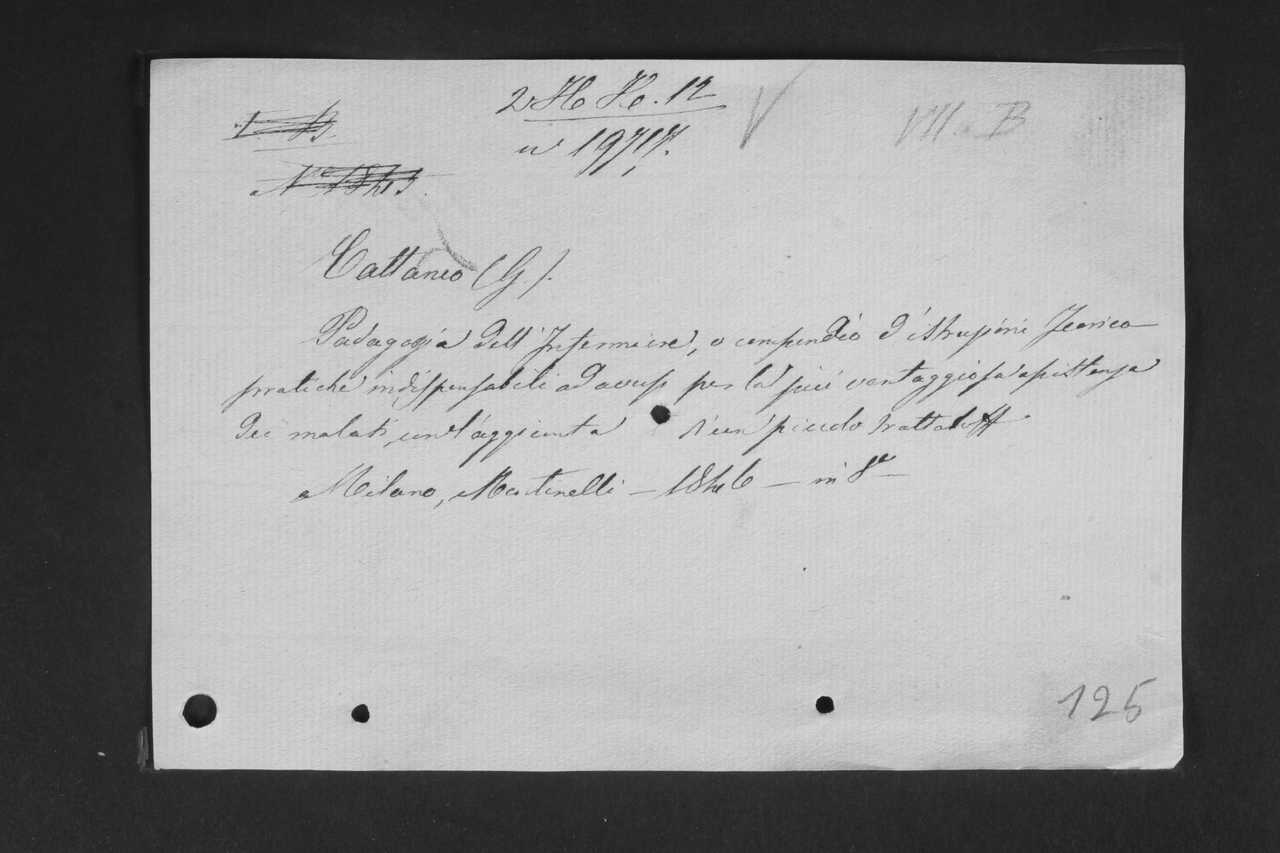 2 H H. 12
V
VII. B
n° 19717.
Cattaneo (G).
Pedagogia dell'Infermiere, o compendio d'istruzioni Teorico
pratiche indispensabili ad per la più vantaggiosa assistenza
dei malati, con l'aggiunta d'un piccolo
Milano, Martinelli – 1846 – in 8°
125